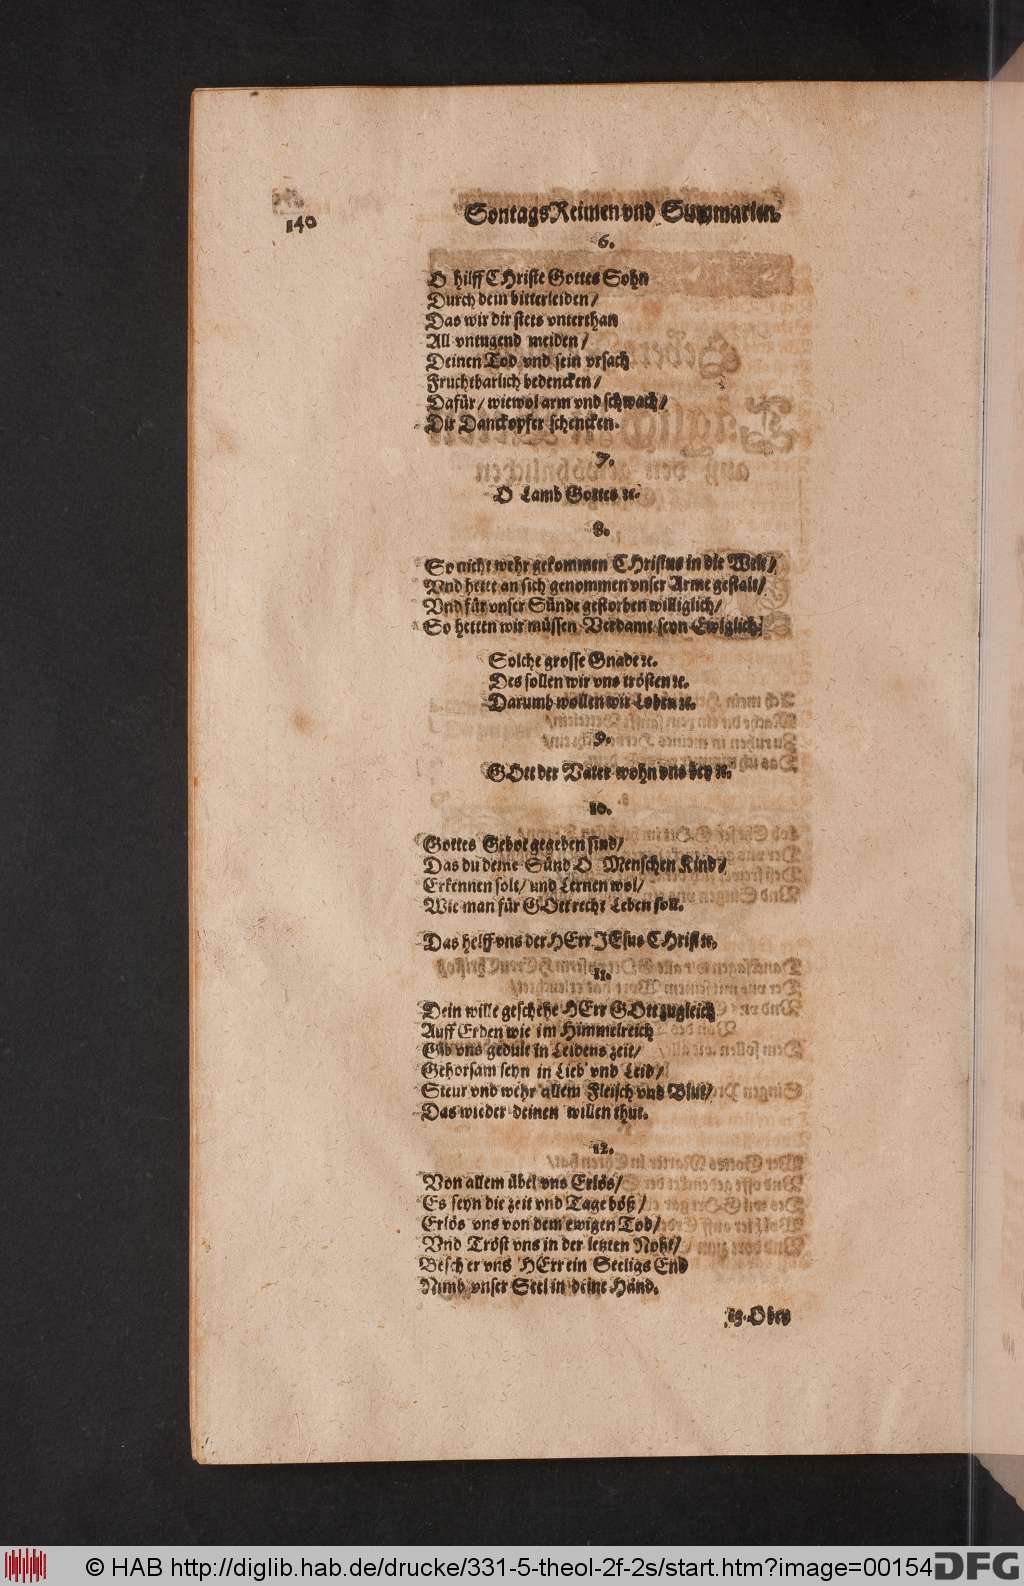 140
Sontags Reimen vnd Summarien.
6.
O hilff CHriste Gottes Sohn
Durch dein bitterleiden /
Das wir dir stets vnterthan
All vntugend meiden /
Deinen Tod vnd sein vrsach
Fruchtbarlich bedencken /
Dafür / wiewol arm vnd schwach /
Dir Danckopfer schencken.
7.
O Lamb Gottes ꝛc.
8.
So nicht wehr gekommen CHristus in die Welt /
Vnd hette an sich genommen vnser Arme gestalt /
Vnd für vnser Sünde gestorben williglich /
So hetten wir müssen Verdamt seyn Ewiglich.
Solche grosse Gnade ꝛc.
Des sollen wir vns trösten ꝛc.
Darumb wollen wir Loben ꝛc.
9.
GOtt der Vater wohn vns bey ꝛc.
10.
Gottes Gebot gegeben sind /
Das du deine Sünd O Menschen Kind /
Erkennen solt / und Lernen wol /
Wie man für GOtt recht Leben soll.
Das helff vns der HErr JEsus CHrist ꝛc.
11.
Dein wille geschehe HErr GOtt zugleich
Auff Erden wie im Himmelreich
Gib vns gedult in Leidens zeit /
Gehorsam seyn in Lieb vnd Leid /
Steur vnd wehr allem Fleisch vnd Blut /
Das wieder deinen willen thut.
12.
Von allem übel vns Erlös /
Es seyn die zeit vnd Tage böß /
Erlös vns von dem ewigen Tod /
Vnd Tröst vns in der letzten Noht /
Bescher vns HErr ein Seeligs End
Nimb vnser Seel in deine Händ.
13. Oben
© HAB http://diglib.hab.de/drucke/331-5-theol-2f-2s/start.htm?image=00154
DFG